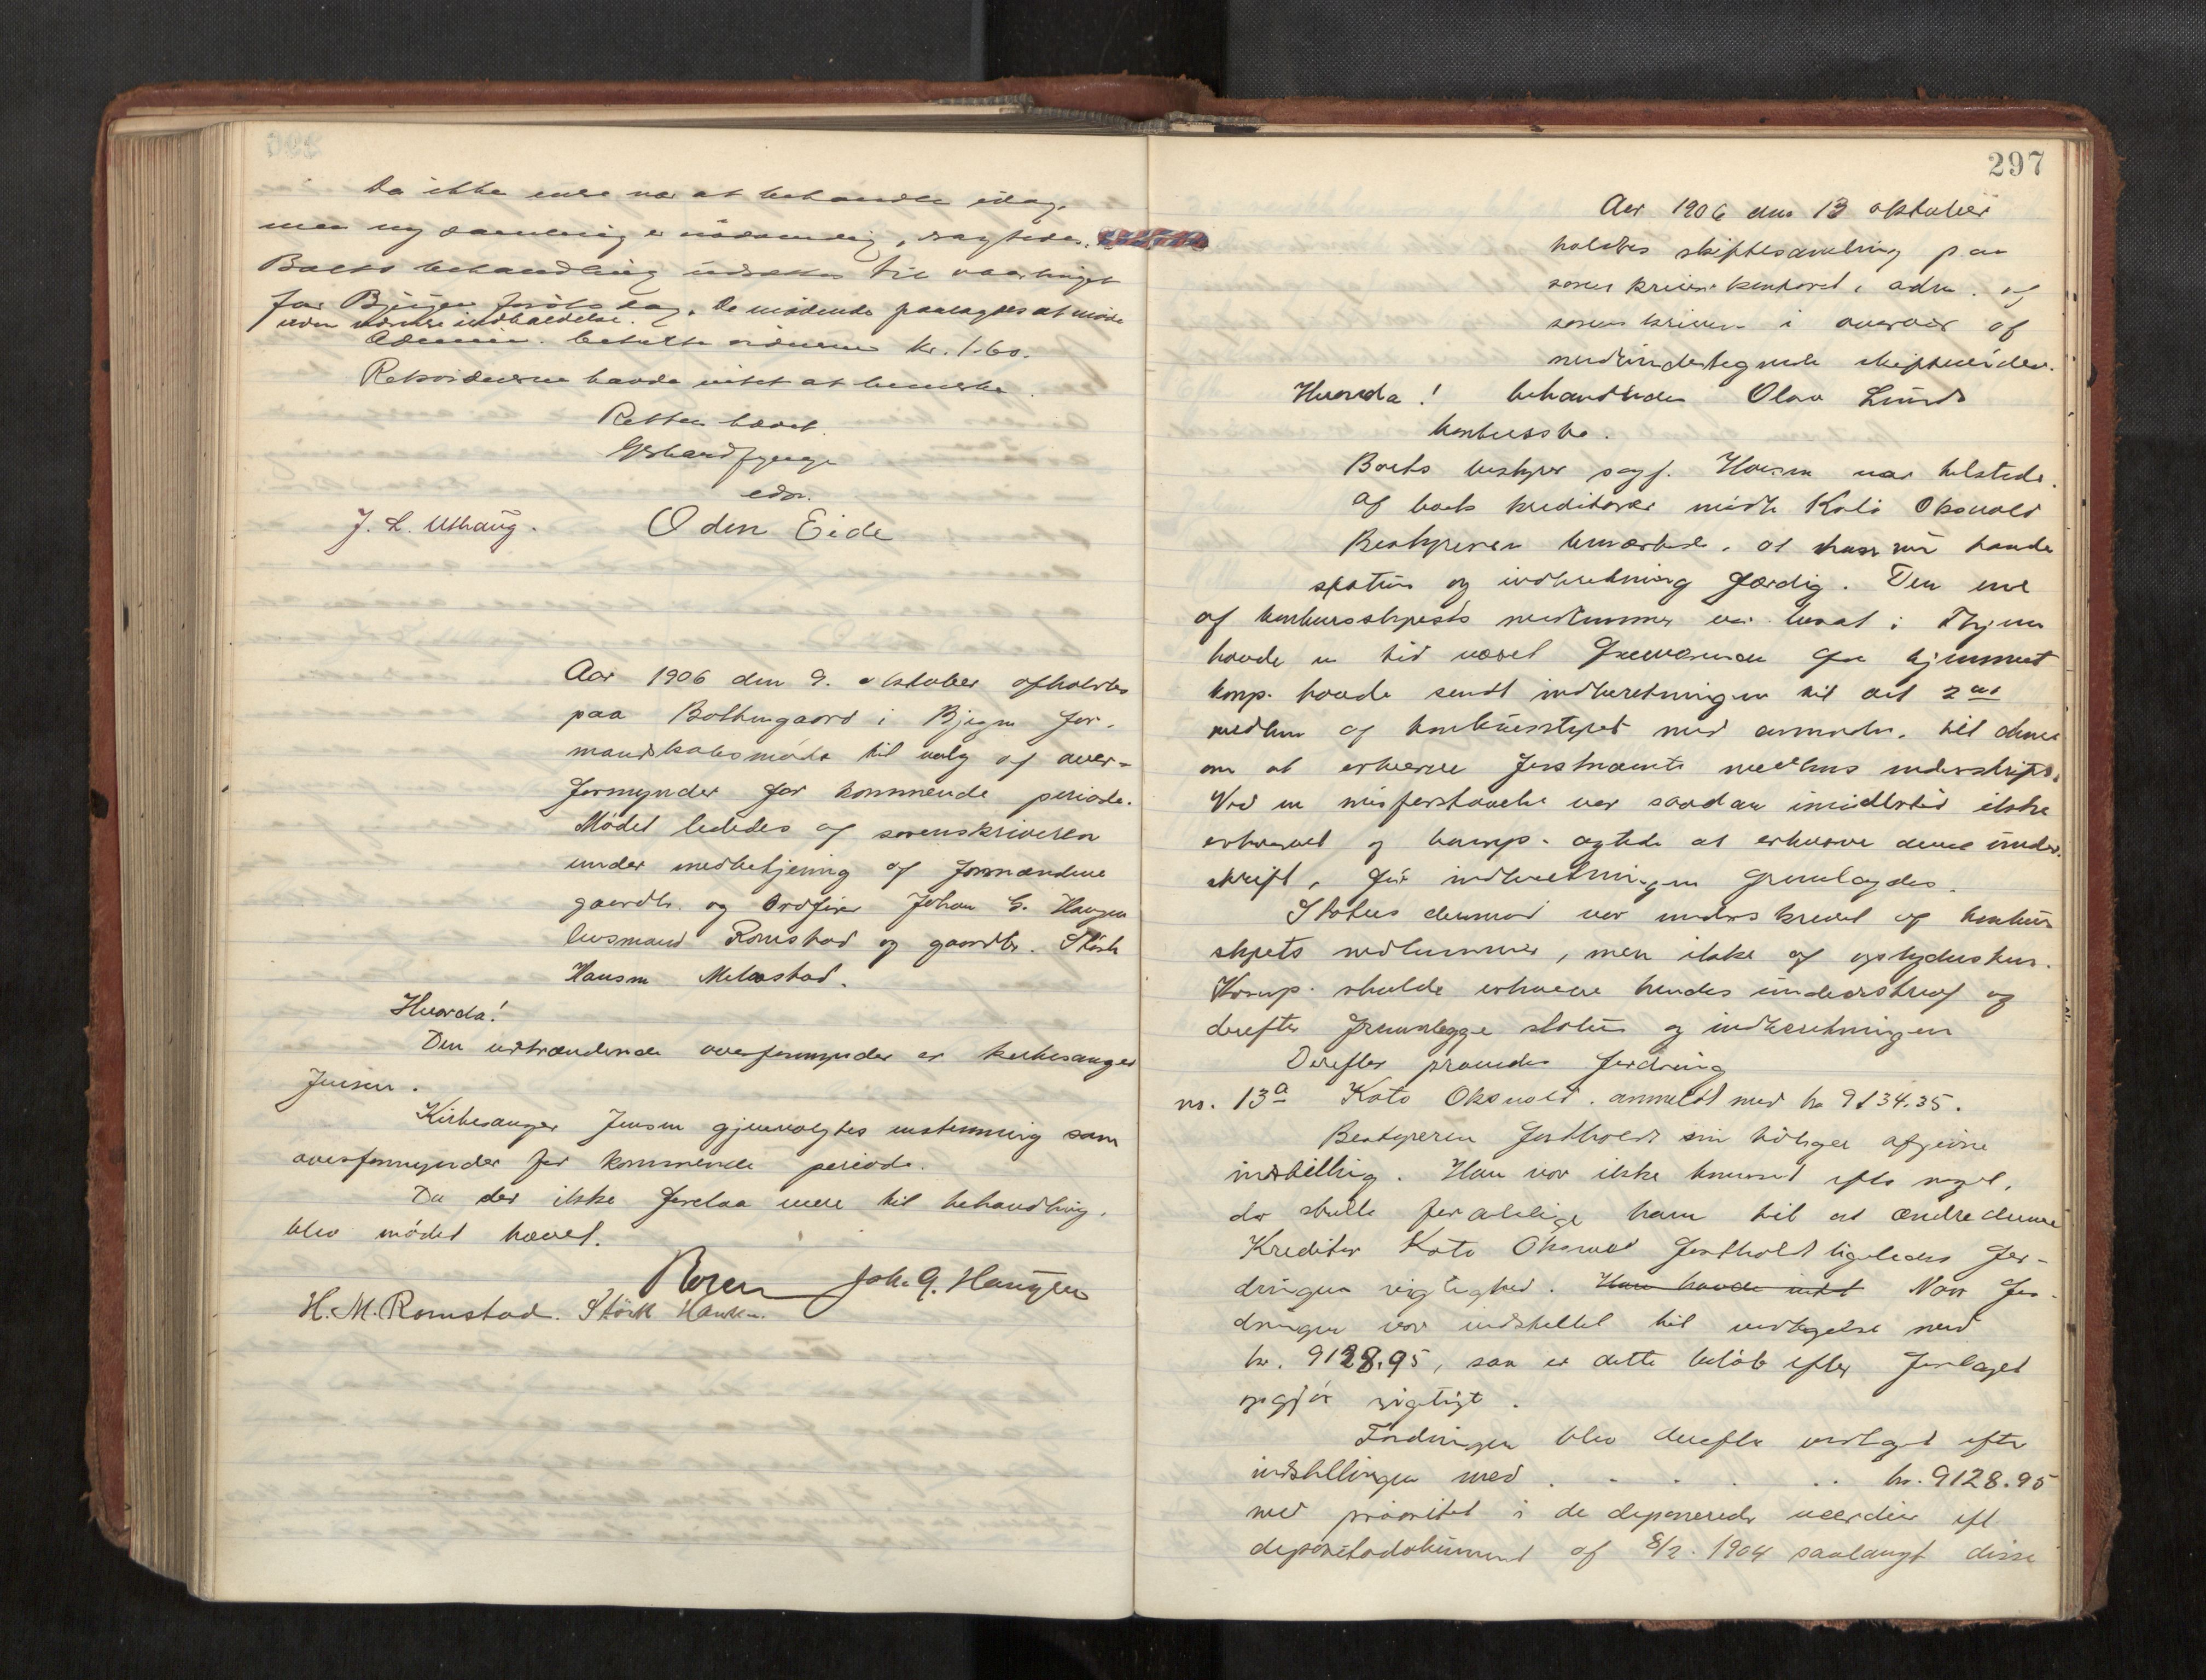 Da ikke mere var at behandle idag,
men ny samling er nødvendig,
Boets behandling udsættes til vaartinget
for Bjugn. De mødende paalagdes at møde
uden nærmere indkaldelse.
betalte vidnerne kr. 1.60.
havde intet at bemerke.
Retten hævet.
edsv.
J. L. Uthaug. Oden Eide
Aar 1906 den 9. oktober afholdtes
paa Botngaard i Bjugn for-
mandskabsmøde til valg af over-
formynder for kommende periode.
Mødet lededes af sorenskriveren
under medbetjening af formændene
gaardbr. og Ordfører Johan G. Haugen
lensmand Romstad og gaardbr. Størk
Hansen Melastad.
Hvorda!
Den udtrædende overformynder er kirkesanger
Jensen.
Kirkesanger Jensen gjenvalgtes enstemmig som
overformynder for kommende periode.
Da der ikke forelaa mere til behandling,
blev mødet hævet.
Joh. G. Haugen
H. M. Romstad. Størk Hansen.
297
Aar 1906 den 13 oktober
holdtes skiftesamling paa
sorenskriverkontoret, adm. af
sorenskriveren i overvær af
medundertegnede skiftevidner.
Hvorda! behandledes Olav Lunds
konkursbo.
Boets bestyrer sagf. Hansen var tilstede.
Af boets kreditorer mødte Kato Oksvold
Bestyreren bemærkede, at han nu havde
status og indberetning færdig. Den ene
af konkursstyrets medlemmer
havde en tid været fraværende fra hjemmet
komp. havde sendt indberetningen til det 2det
medlem af konkursstyret med anmodn. til denne
om at erhverve førstnævnte medlems underskrift.
Ved en misforstaaelse var saadan imidlertid ikke
erhvervet og komp. agtede at erhverve denne under-
skrift, før indberetningen fremlagdes.
Status derimod var underskrevet af konkurs
styrets medlemmer, men ikke af
Komp. skulde erhverve hendes underskrift og
derefter fremlægge status og indberetningen
Derefter prøvedes fordring
no. 13a Kato Oksvold. anmeldt med kr 9134.35.
Bestyreren fastholdt sin tidligere afgivne
indstilling. Han var ikke kommet efter noget,
der skulle foranledige ham til at ændre denne
Kreditor Kato Oksvold fastholdt ligeledes for-
dringens rigtighed. Han havde intet Naar for-
dringen var indstillet til vedtagelse med
kr. 9128.95, saa er dette beløb efter forelaget
opgjør rigtigt.
Fordringen blev derefter vedtaget efter
indstillingen med . . . . . . kr. 9128.95
med prioritet i de deponerede værdier eft
depositodokument af 8/2. 1904 saalangt disse